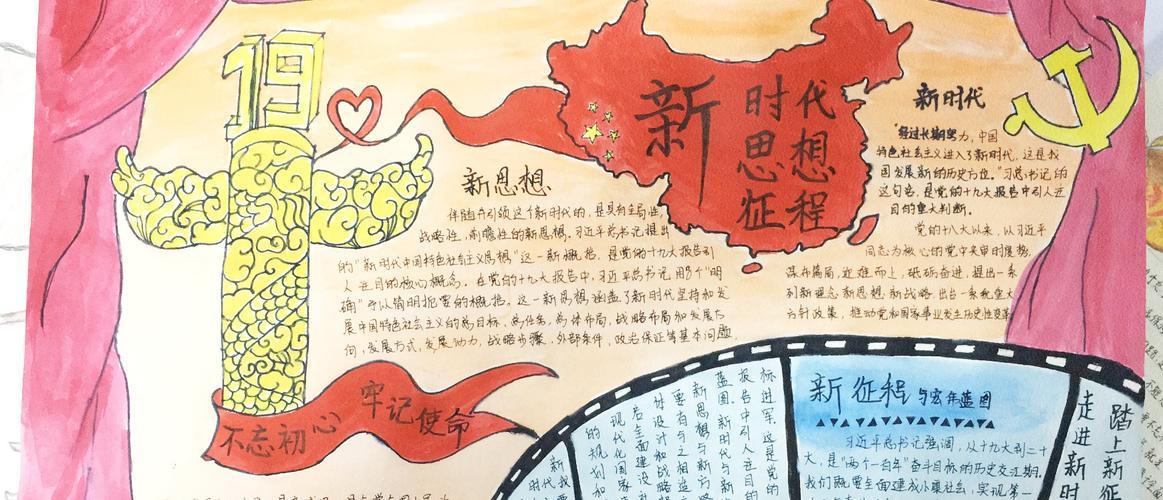 19
新 时代
思想
征程
新时代
"经过长期努力,中国
特色社会主义进入了新时代,这是我
国发展新的历史方位。"习总书记的
这句话,是党的十九大报告中引人注
目的重大判断。
党的十八大以来,以习近平
同志为核心的党中央审时度势,
谋篇布局,迎难而上,砥砺奋进,提出一系
列新理念新思想新战略,出台一系列重大
方针政策,推动党和国家事业发生历史性变革
新思想
伴随并引领这个新时代的,是具有全局性,
战略性,前瞻性的新思想。习近平总书记提出
的"新时代中国特色社会主义思想"这一新概括,是党的十九大报告引
人注目的核心概念。在党的十九大报告中,习近平总书记用8个"明
确"予以简明扼要的概括。这一新思想,涵盖了新时代坚持和发
展中国特色社会主义的总目标,总任务,总体布局,战略布局和发展方
向,发展方式,发展动力,战略步骤,外部条件,政治保证等基本问题
不忘初心 牢记使命
新征程与宏伟蓝图
习近平总书记强调,从十九大到二十
大,是"两个一百年"奋斗目标的历史交汇期。
我们既要全面建成小康社会,实现第一
踏上新征
走进新时
标进军。这是党的
报告中引人注目的
蓝图。新时代与
新思想与新
要有与之相
设计和战略
后全面建设
现代化国家
的规划和
新时代我